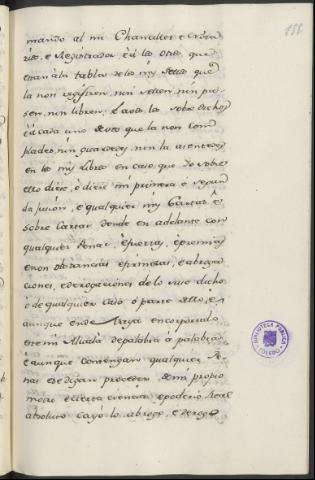 188
mando al mi Chanciller e Nota
rios, e Registrador e a los otros que
estan a la tabla de los mis Sellos que
la non registren, nin sellen, nin pa
sen, nin libren; e a vos los sobre dichos
e a cada uno de vos que la non cum
plades, nin guardedes, nin la asentedes
en los mis Libros en caso, que Yo sobre
ello diese, o diere mi primera e segun
da jusion, e qualquier mis Cartas e
sobre Cartas dende en adelante con
qualquier penas, e fuerzas, e premias
e non obstancias e firmezas, e abroga
ciones, e derogaciones de lo suso dicho
e de qualquier cosa o parte dello, e
aunque ende vaya encorporado
este mi Alvala de palabra a palabra
e aunque contengan qualquier pe
nas, e se digan proceder de mi propio
motu e cierta ciencia e poderio Real
absoluto ca yo lo abrogo, e derogo
BIBLIOTECA PUBLICA
TOLEDO